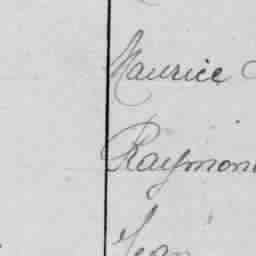 Maurice
Raymon
Jean